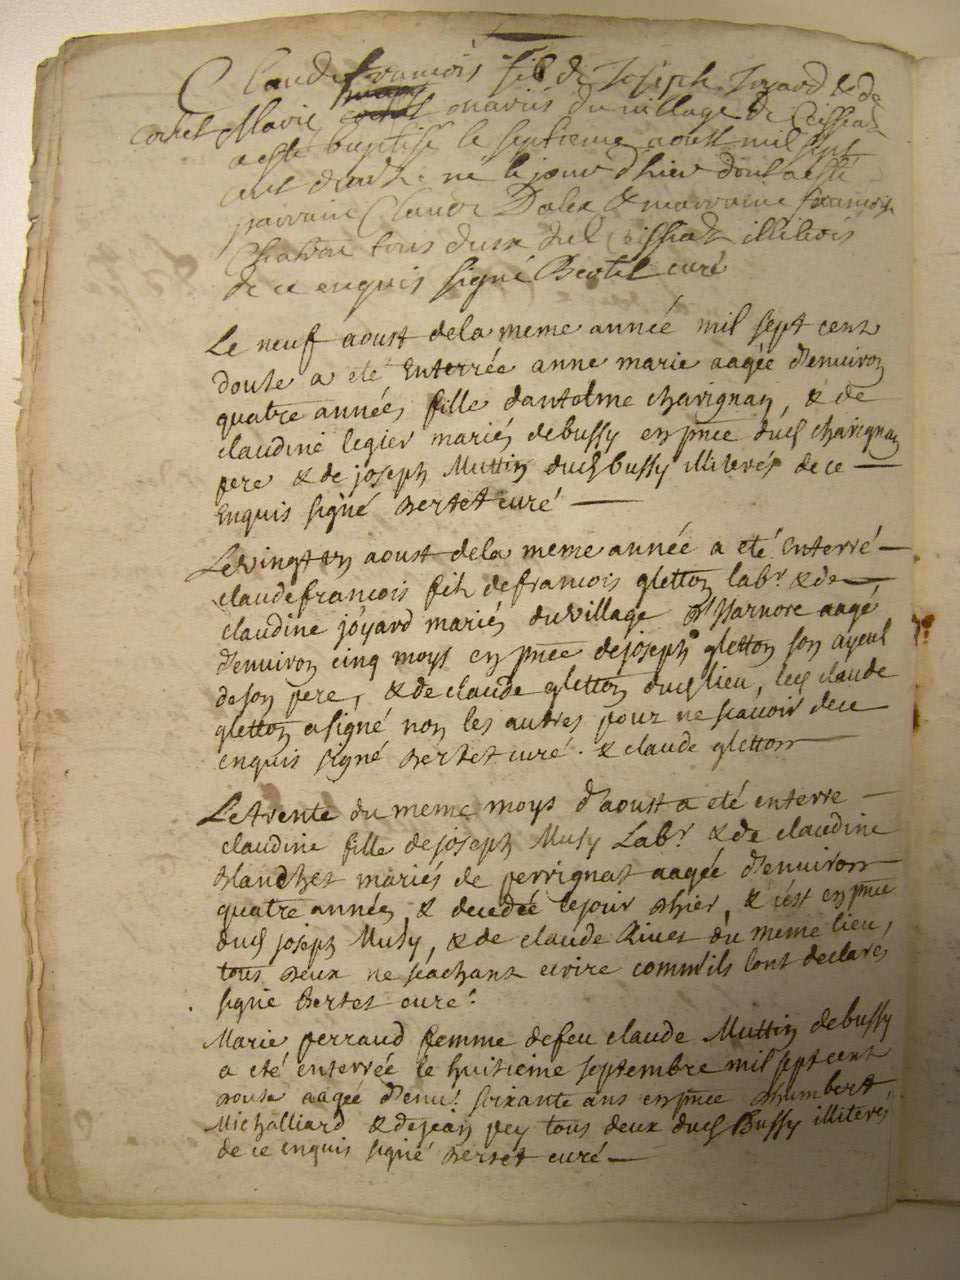 Claude francois fils de Joseph Joyard & de
corret Marie mariés du village de Cüissiat
a esté baptisé le septieme aoust mil sept
cent douze ne le jour d'hier dont a esté
parraine Claude Dalex & marraine francoise
tous deux dud Cüissiat illiterés
de ce enquis signé Bertet curé
Le neuf aoust dela meme année mil sept cent
douse a eté Enterrée anne marie aagée d'enuiron
quatre années fille dantolme chavignan, & de
claudine legier mariés de bussy en pnce dud chavignan
pere & de joseph Muttin dud bussy illiterés de ce
Enquis signé Bertet curé
Le vingt un aoust dela meme année a eté Enterré
claude francois fils de francois gletton labr & de
claudine joyard mariés du village d'Harnore aagé
d'enuiron cinq moys en pnce de joseph gletton son ayeul
de son pere, & de claude gletton dud lieu, led claude
gletton a signé non les autres pour ne scavoir de ce
enquis signé Bertet curé. & claude gletton
Le trente du meme moys d'aoust a eté enterre
claudine fille de joseph Musy Labr & de claudine
blanchet mariés de perrignat aagée d'enuiron
quatre années & decedée le jour d'hier, & c'est en pnce
dud joseph Musy, & de claude Riues du meme lieu,
tous deux ne scachant ecrire comm'ils l'ont declarés
signé Bertet curé.
Marie perraud femme de feu claude Muttin de bussy
a eté enterrée le huitieme septembre mil sept cent
douse aagée d'enu. soixante ans en pnce d'humbert
Michalliard & de jean pey tous deux dud Bussy illiterés
de ce enquis signé Bertet curé